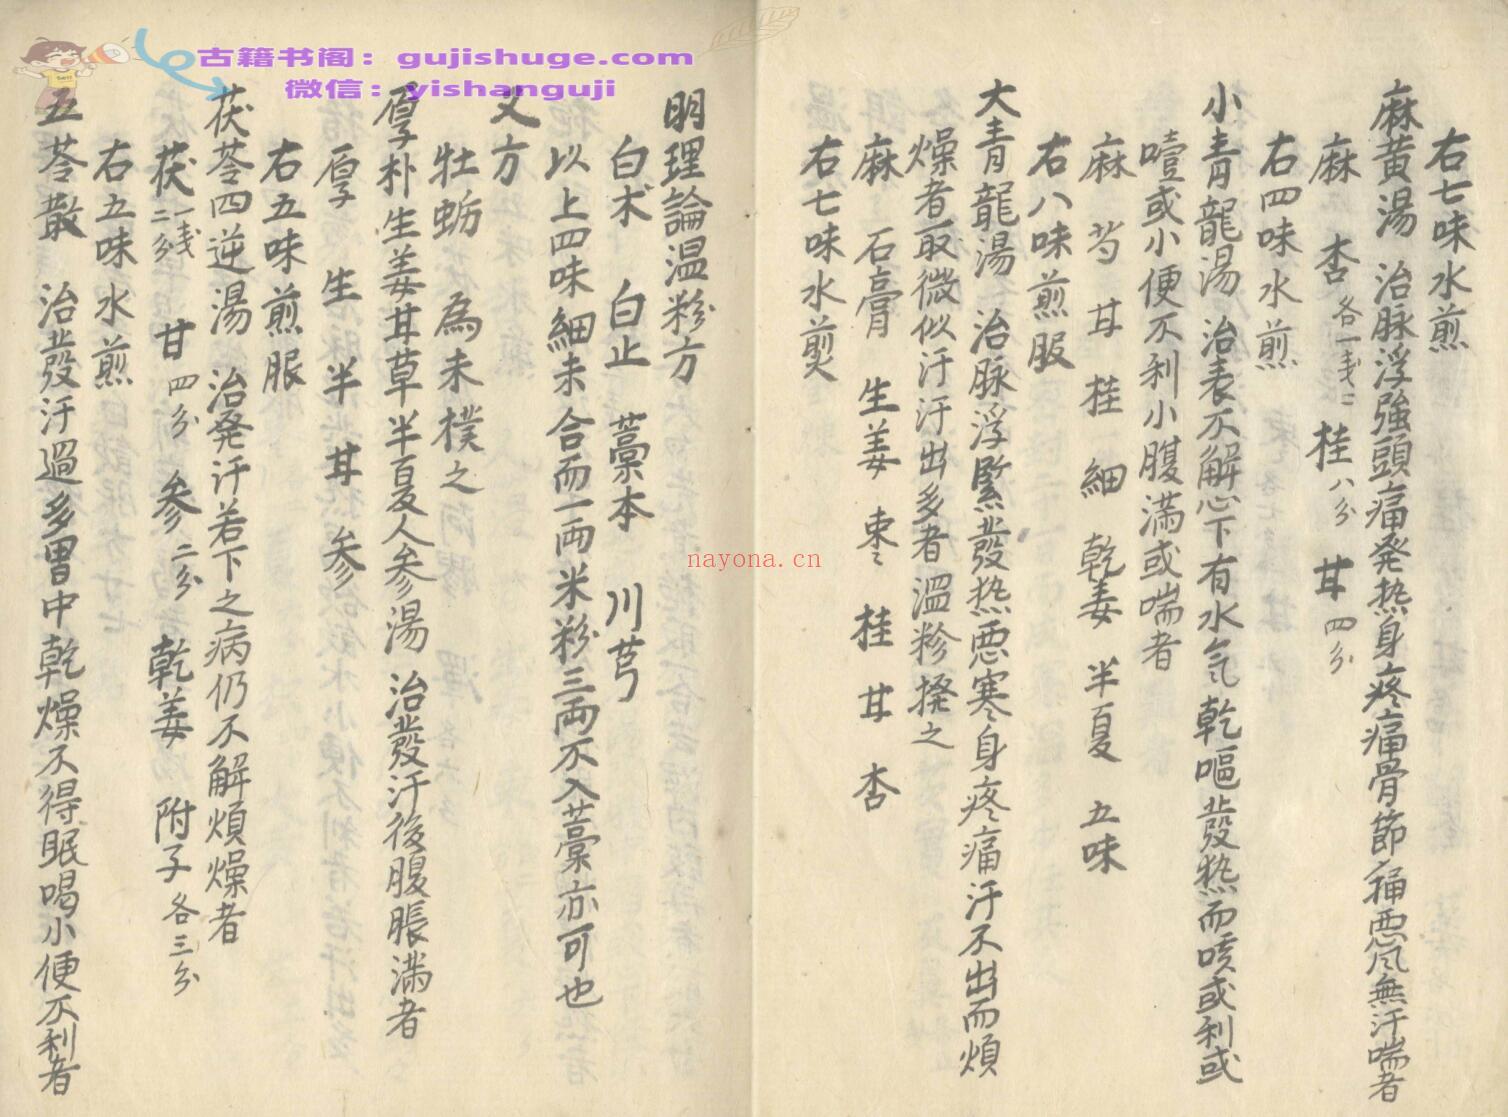 古籍书阁：gujishuge.com
微信：yishanguji
nayona.cn
右七味水煎
麻黄湯 治脉浮強頭痛発热身疼痛骨節痛悪风無汗喘者
麻 杏各一戋二 桂八分 甘四分
右四味水煎
小青龍湯 治表不解心下有水气乾嘔發热而咳或利或
噎或小便不利小腹滿或喘者
麻 芍 甘 桂 細 乾姜 半夏 五味
右八味煎服
大青龍湯 治脉浮緊發热悪寒身疼痛汗不出而煩
燥者取微似汗汗出多者温粉撲之
麻 石膏 生姜 枣 桂 甘 杏
右七味水煎
明理論温粉方
白术 白止 藁本 川芎
以上四味細末合而一両米粉三両不入藁亦可也
又方
牡蛎 為末撲之
厚朴生姜甘草半夏人参湯 治發汗後腹脹滿者
厚 生 半 甘 参
右五味煎服
茯苓四逆湯 治発汗若下之病仍不解煩燥者
茯一戋二分 甘四分 参二分 乾姜 附子各三分
右五味水煎
五苓散 治發汗過多胃中乾燥不得眠喝小便不利者